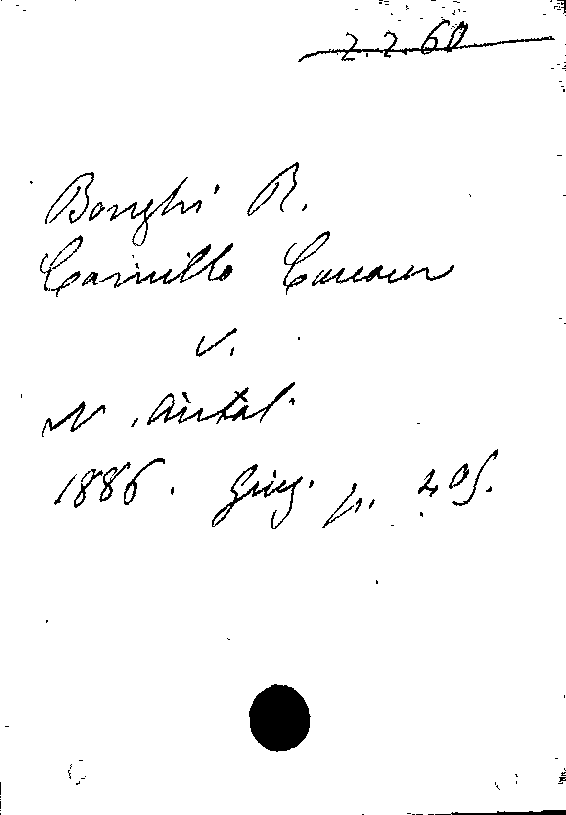 2.2.60
Bonghi R.
Camillo Cavour
v.
N. Antol.
1886. Giug. p. 405.